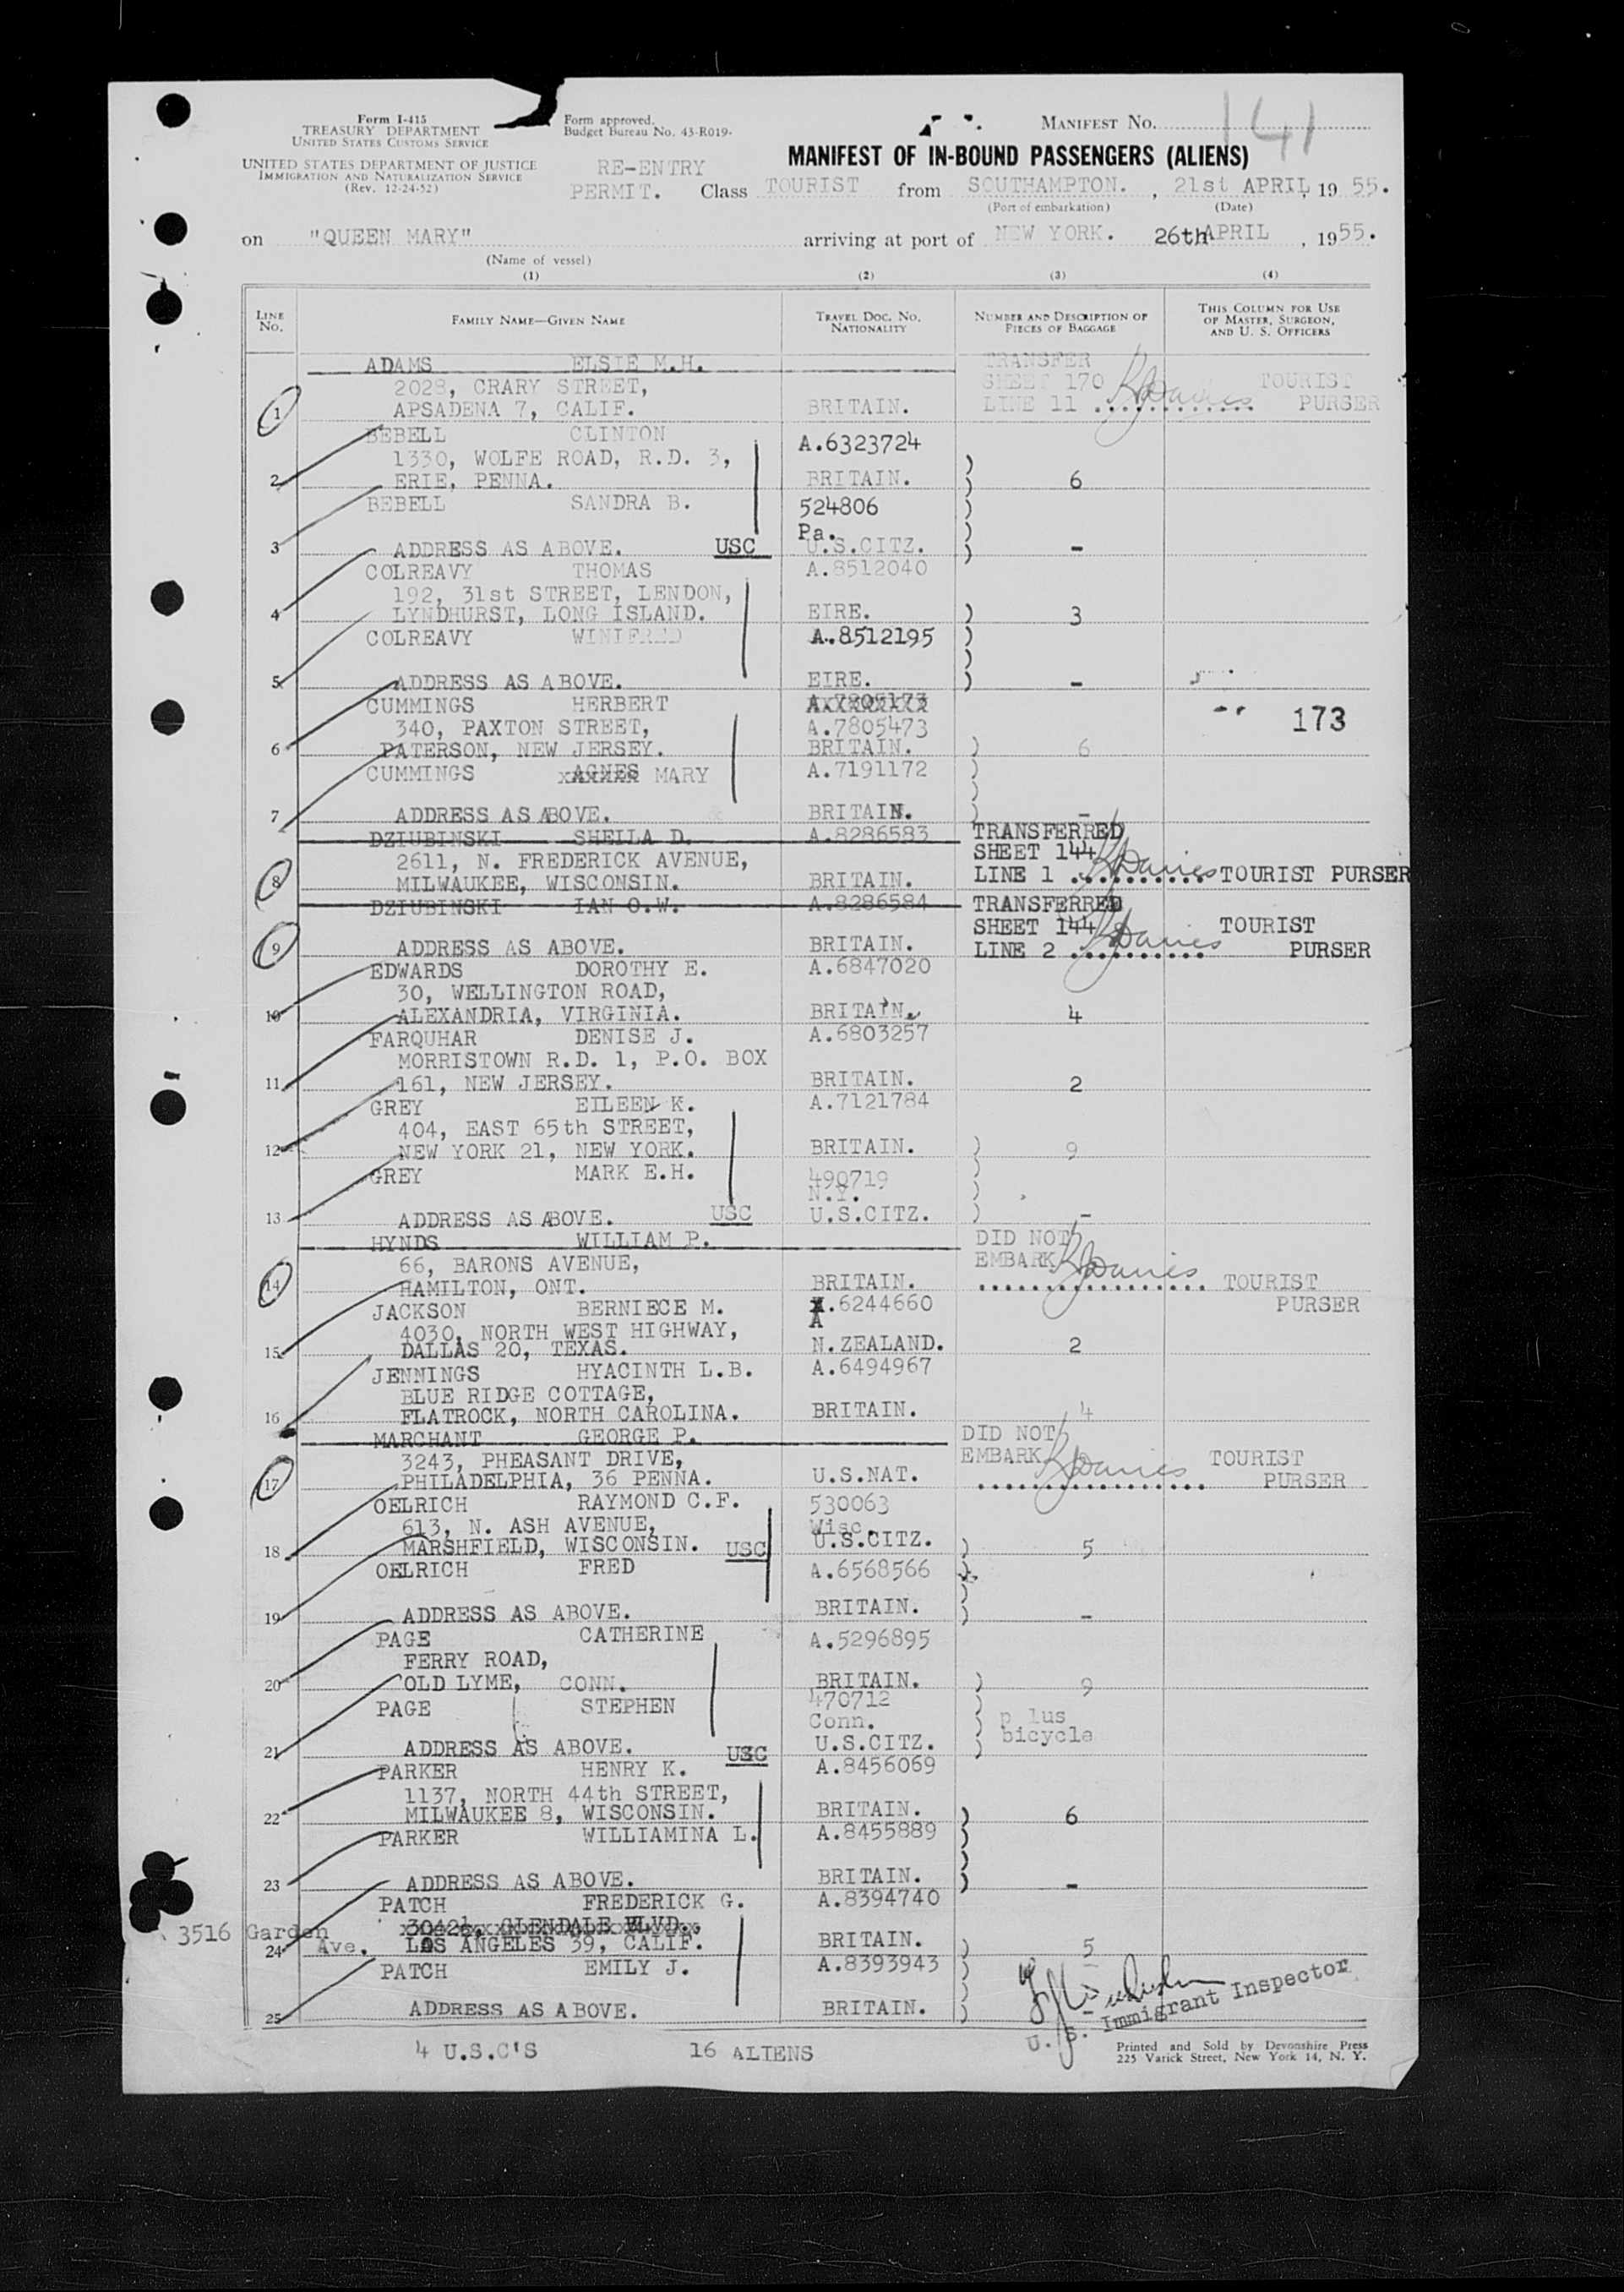 Form I-415
TREASURY DEPARTMENT
UNITED STATES CUSTOMS SERVICE
UNITED STATES DEPARTMENT OF JUSTICE
IMMIGRATION AND NATURALIZATION SERVICE
(Rev. 12-24-52)
Form approved.
Budget Bureau No. 43-R019-
MANIFEST No. 141
MANIFEST OF IN-BOUND PASSENGERS (ALIENS)
RE-ENTRY
PERMIT. Class TOURIST from SOUTHAMPTON. , 21st APRIL, 19 55.
(Port of embarkation) (Date)
on "QUEEN MARY" arriving at port of NEW YORK. 26th APRIL , 1955.
(Name of vessel)
(1) (2) (3) (4)
LINE No. FAMILY NAME—GIVEN NAME TRAVEL DOC. No. NATIONALITY NUMBER AND DESCRIPTION OF PIECES OF BAGGAGE THIS COLUMN FOR USE OF MASTER, SURGEON, AND U. S. OFFICERS
ADAMS ELSIE M.H. TRANSFER
2028, CRARY STREET, SHEET 170 TOURIST
1 APSADENA 7, CALIF. BRITAIN. LINE 11 ............ PURSER
BEBELL CLINTON A.6323724
1330, WOLFE ROAD, R.D. 3,
2 ERIE, PENNA. BRITAIN. ) 6
BEBELL SANDRA B. 524806
Pa.
3 ADDRESS AS ABOVE. USC U.S.CITZ. ) -
COLREAVY THOMAS A.8512040
192, 31st STREET, LENDON,
4 LYNDHURST, LONG ISLAND. EIRE. ) 3
COLREAVY WINIFRED A.8512195
5 ADDRESS AS ABOVE. EIRE. ) -
CUMMINGS HERBERT A.7805173
173
340, PAXTON STREET, A.7805473
6 PATERSON, NEW JERSEY. BRITAIN. ) 6
CUMMINGS AGNES MARY A.7191172
7 ADDRESS AS ABOVE. BRITAIN. ) -
DZIUBINSKI SHEILA D. A.8286583 TRANSFERRED
2611, N. FREDERICK AVENUE, SHEET 144
8 MILWAUKEE, WISCONSIN. BRITAIN. LINE 1 .......... TOURIST PURSER
DZIUBINSKI IAN O.W. A.8286584 TRANSFERRED
SHEET 144 TOURIST
9 ADDRESS AS ABOVE. BRITAIN. LINE 2 .......... PURSER
EDWARDS DOROTHY E. A.6847020
30, WELLINGTON ROAD,
10 ALEXANDRIA, VIRGINIA. BRITAIN. 4
FARQUHAR DENISE J. A.6803257
MORRISTOWN R.D. 1, P.O. BOX
11 161, NEW JERSEY. BRITAIN. 2
GREY EILEEN K. A.7121784
404, EAST 65th STREET,
12 NEW YORK 21, NEW YORK. BRITAIN. ) 9
GREY MARK E.H. 490719
N.Y.
13 ADDRESS AS ABOVE. USC U.S.CITZ. ) -
HYNDS WILLIAM P. DID NOT
66, BARONS AVENUE, EMBARK
14 HAMILTON, ONT. BRITAIN. ................. TOURIST
JACKSON BERNIECE M. A.6244660 PURSER
4030, NORTH WEST HIGHWAY,
15 DALLAS 20, TEXAS. N.ZEALAND. 2
JENNINGS HYACINTH L.B. A.6494967
BLUE RIDGE COTTAGE,
16 FLATROCK, NORTH CAROLINA. BRITAIN. 4
MARCHANT GEORGE P. DID NOT
3243, PHEASANT DRIVE, EMBARK TOURIST
17 PHILADELPHIA, 36 PENNA. U.S.NAT. ................. PURSER
OELRICH RAYMOND C.F. 530063
613, N. ASH AVENUE, Wisc.
18 MARSHFIELD, WISCONSIN. USC U.S.CITZ. ) 5
OELRICH FRED A.6568566
19 ADDRESS AS ABOVE. BRITAIN. ) -
PAGE CATHERINE A.5296895
FERRY ROAD,
20 OLD LYME, CONN. BRITAIN. ) 9
PAGE STEPHEN 470712
Conn. ) p lus
bicycle
21 ADDRESS AS ABOVE. USC U.S.CITZ. )
PARKER HENRY K. A.8456069
1137, NORTH 44th STREET,
22 MILWAUKEE 8, WISCONSIN. BRITAIN. ) 6
PARKER WILLIAMINA L. A.8455889
23 ADDRESS AS ABOVE. BRITAIN. ) -
PATCH FREDERICK G. A.8394740
3516 Garden 3042½, GLENDALE BLVD.,
24 Ave. LOS ANGELES 39, CALIF. BRITAIN. ) 5
PATCH EMILY J. A.8393943
25 ADDRESS AS ABOVE. BRITAIN. ) -
U. S. Immigrant Inspector
4 U.S.C'S 16 ALIENS
Printed and Sold by Devonshire Press
225 Varick Street, New York 14, N. Y.